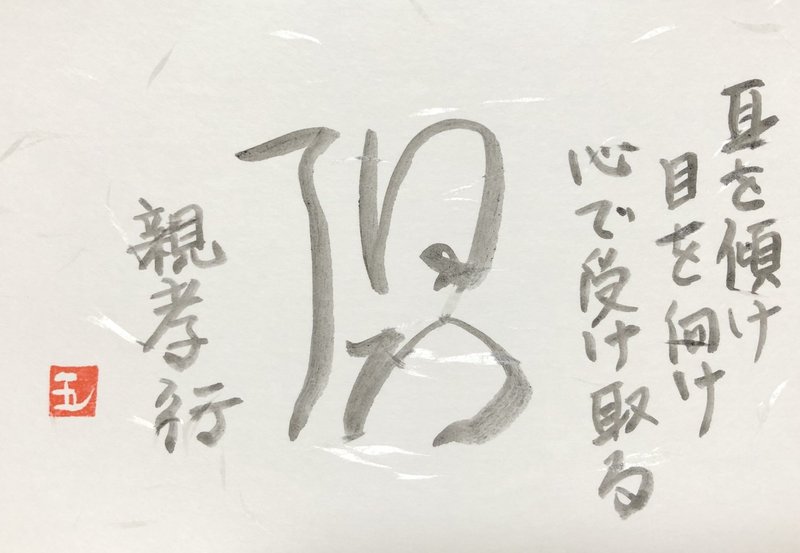 耳を傾け
目を向け
心で受け取る
親孝行